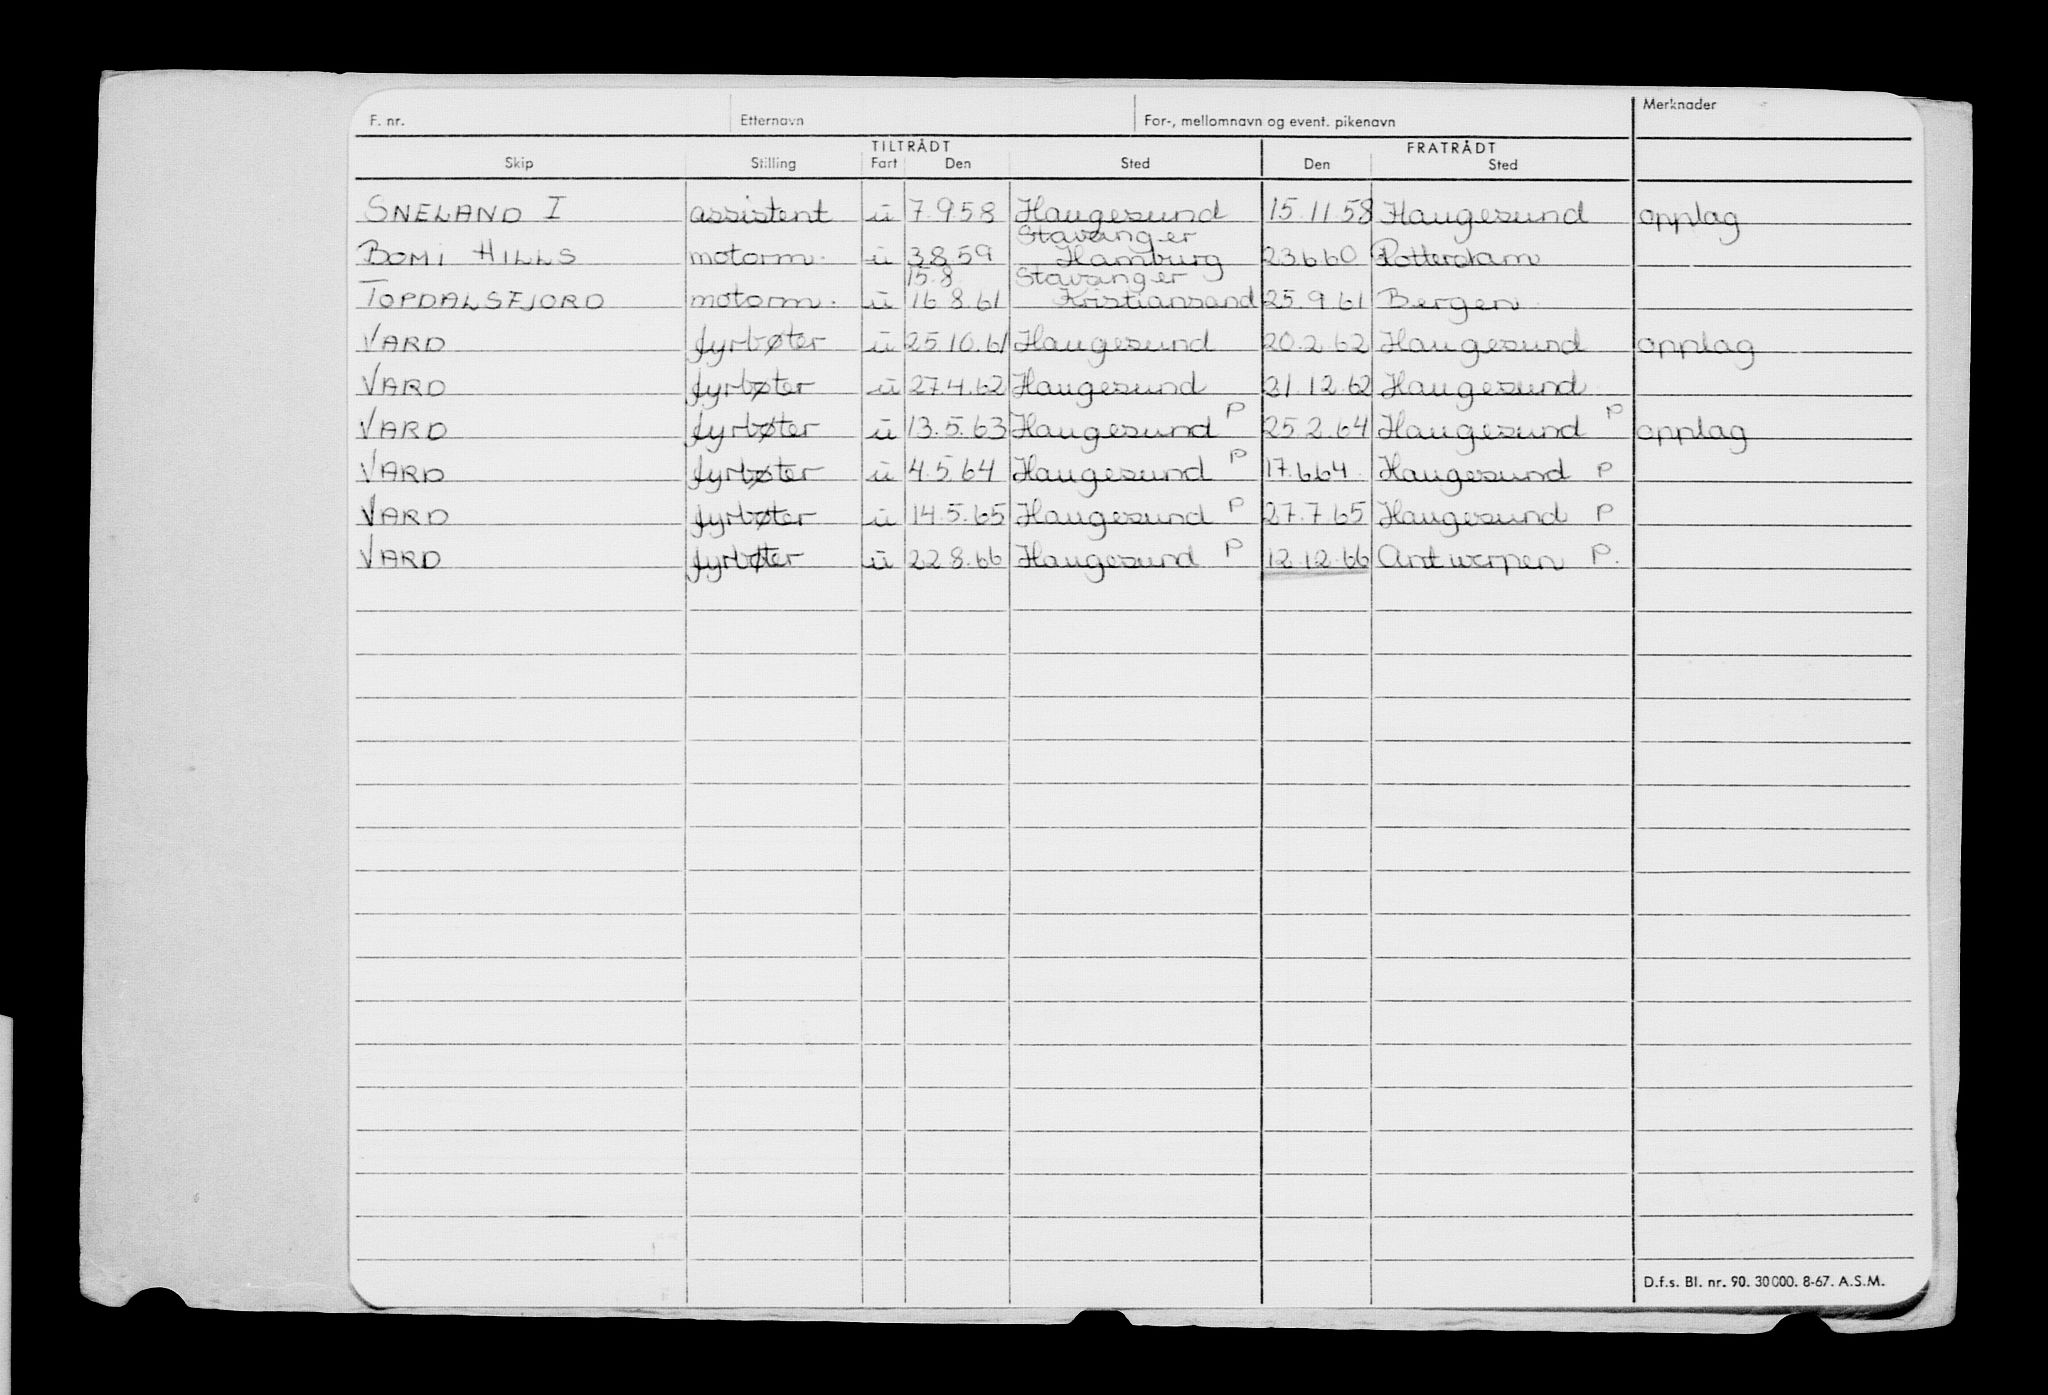 F. nr. Etternavn For-, mellomnavn og event. pikenavn Merknader
TILTRÅDT FRATRÅDT
Skip Stilling Fart Den Sted Den Sted
SNELAND I assistent u 7.9.58 Haugesund 15.11.58 Haugesund opplag
Stavanger
BOMI HILLS motorm. u 3.8.59 Hamburg 23.6.60 Rotterdam
15.8 Stavanger
TOPDALSFJORD motorm. u 16.8.61 Kristiansand 25.9.61 Bergen
VARD fyrbøter u 25.10.61 Haugesund 20.2.62 Haugesund opplag
VARD fyrbøter u 27.4.62 Haugesund 21.12.62 Haugesund
VARD fyrbøter u 13.5.63 Haugesund P 25.2.64 Haugesund P opplag
VARD fyrbøter u 4.5.64 Haugesund P 17.6.64. Haugesund P
VARD fyrbøter u 14.5.65 Haugesund P 27.7.65 Haugesund P
VARD fyrbøter u 22.8.66 Haugesund P 12.12.66 Antwerpen P.
D.f.s. Bl. nr. 90. 30000. 8-67. A.S.M.